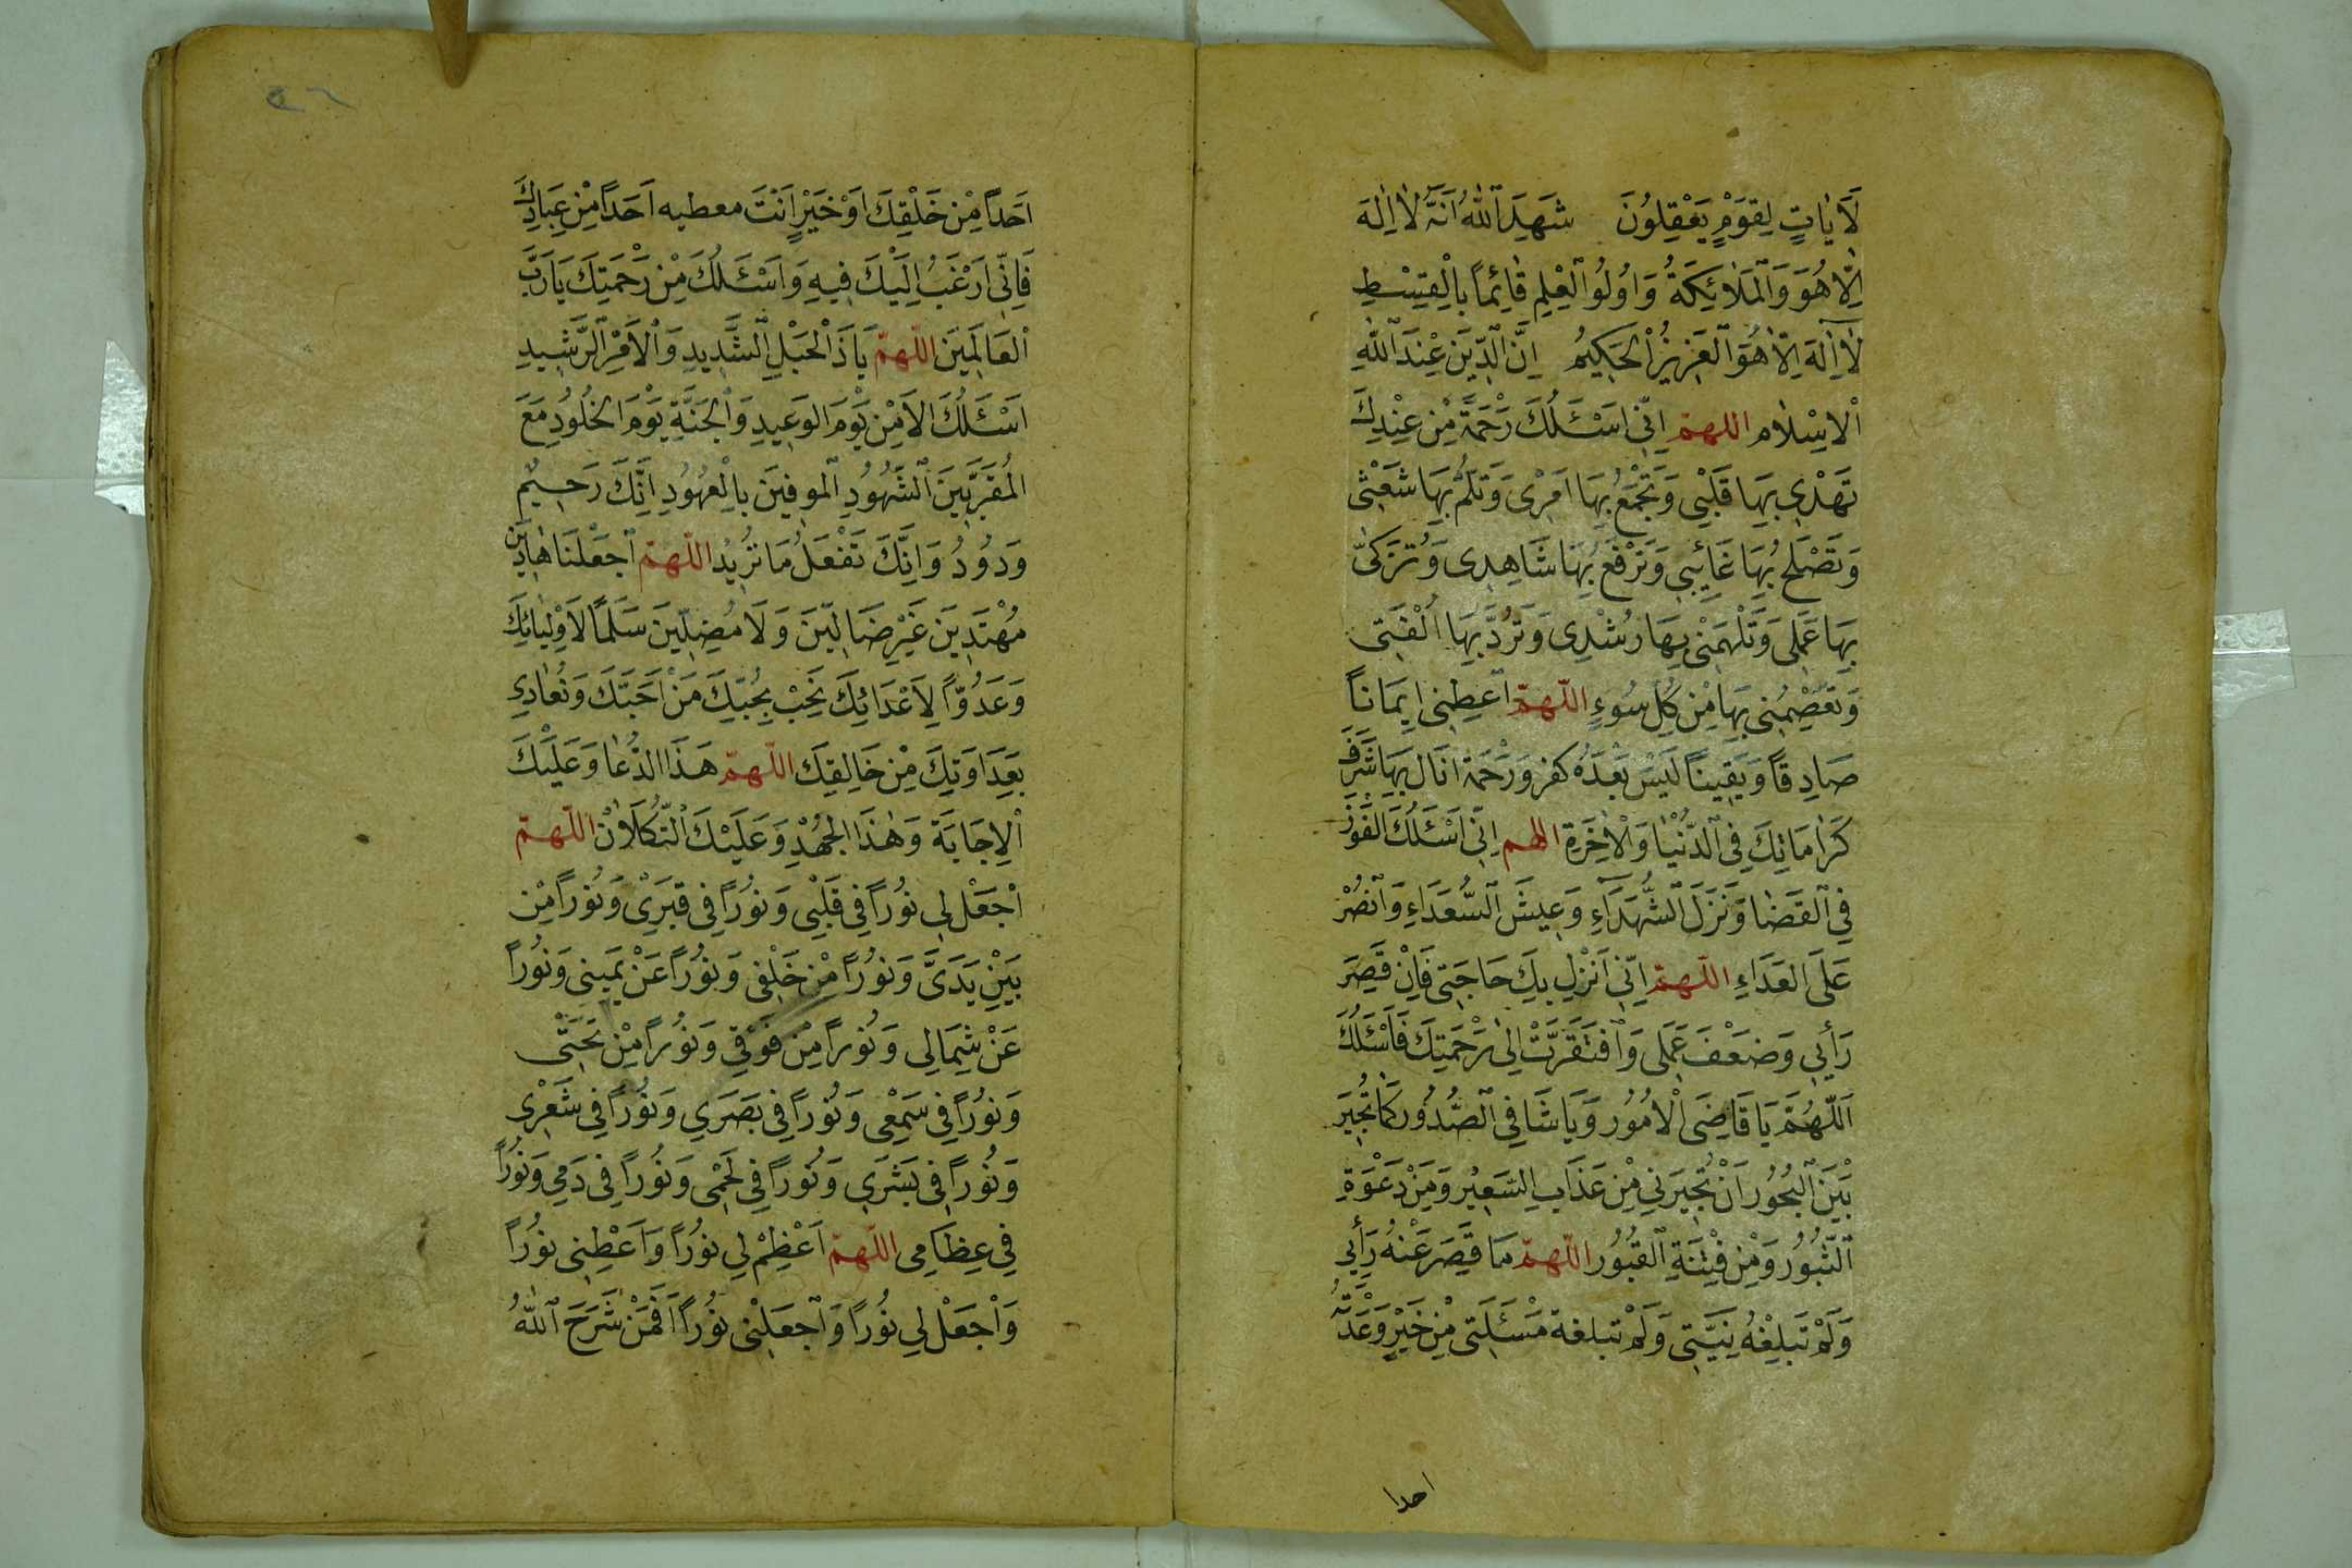 لَاٰيٰاتٍ لِقَوْمٍ يَعْقِلُونَ شَهِدَ ٱللّٰهُ اَنَّهُ لٰا اِلٰهَ
اِلّٰا هُوَ وَالْمَلٰائِكَةُ وَاُولُوا ٱلْعِلْمِ قٰائِماً بِالْقِسْطِ
لٰا اِلٰهَ اِلّٰا هُوَ ٱلْعَزِيزُ ٱلْحَكِيمُ اِنَّ ٱلدّينَ عِنْدَ ٱللّٰهِ
ٱلْاِسْلٰام اللهمّ اِنّي اَسْئَلُكَ رَحْمَةً مِنْ عِنْدِكَ
تَهْدِي بِهَا قَلْبِي وَتَجْمَعُ بِهَا اَمْرِى وَتَلُمُّ بِهَا شَعْثِى
وَتَصْلَحُ بِهَا غَائِبِي وَتَرْفَعُ بِهَا شَاهِدِى وَتُزَكّىٰ
بِهَا عَمَلِى وَتَلْهَمَنْي بِهَا رُشْدِى وَتَرُدَّ بِهَا اُلْفَتِى
وَتَعْصِمُنِي بِهَا مِنْ كُلِّ سُوءٍ اللّهمّ اَعْطِنِى اِيمَاناً
صَادِقاً وَيَقِيناً لَيْسَ بَعْدَهُ كفر وَرَحْمَة انَال بِهَا شَرَفَ
كَرَامَاتِكَ فِى ٱلدُّنْيٰا وَٱلْاٰخِرَةِ اللهم اِنّي اَسْئَلُكَ الفَوْزَ
فِي ٱلقَضٰا وَنَزَلَ ٱلشُّهَدَآءِ وَعِيشَ ٱلسُّعَدَاءِ وَٱنصُرْ
عَلَى العَدَاءِ اللّهمّ اِنّي اَنْزِلِ بِكَ حَاجَتِى فَاِنْ قَصِرَ
رَأْيِي وَضَعْفَ عَمَلِى وَٱفتَقَرَّتْ اِلىٰ رَحْمَتِكَ فَاَسْئَلُكَ
اَللّهُمَّ يَا قَاضِىَ اْلاُمُور وَيَا شَافِي ٱلصُّدُور كَمَا تُجِيرَ
بْيَنَ ٱلبُحُور اَنْ تُجِيرَنِي مِنْ عَذَابِ السَعِيْر وَمِنْ دَعْوَةِ
ٱلثُّبُور وَمِنْ فِتْنَةِ ٱلقُبُور اللّهمّ مَا قَصِرَ عَنْهُ رَأْيِي
وَلَمْ تَبْلِغْهُ نِيَّتِي وَلَمْ تبلغه مَسْئَلَتِى مِنْ خَيْرٍ وَعْدَتَهُ
احدا
٤٦
اَحَداً مِنْ خَلْقِكَ اَوْ خَيْرٍ اَنْتَ معطيه اَحَداً مِنْ عِبَادِكَ
فَاِنّى اَرْغَبُ اِلَيْكَ فِيهِ وَاَسْئَلُكَ مِنْ رَحْمَتِكَ يَا رَبَّ
ٱلعَالَمِينَ اللّهمّ يَا ذَ ٱلْحَبْلِ ٱلشَّدِيدِ وَٱلْاَمْرِ ٱلرَّشِيدِ
اَسْئَلُكَ الاَمْنَ يَوْمَ الوَعِيدِ وَٱلجَنَّةَ يَوْمَ الخُلُودِ مَعَ
المُقَرَّبِينَ ٱلشّهُودِ ٱلموفِينَ بِالْعُهُودِ اِنَّكَ رَحِيمٌ
وَدُودُ وَاِنَّكَ تَفْعَلُ مَا تُرِيدُ اللّهمّ ٱجعَلْنَا هَادِينَ
مُهْتَدِينَ غَيْرِ ضَالِّينَ وَلَا مُضِلِّينَ سَلَماً لِاَوْلِيَائِكَ
وَعَدُوّاً لِاَعْدَائِكَ نَحِبْ بِحُبِّكَ مَنْ اَحَبَّكَ وَنُعَادِي
بِعَدَاوَتِكَ مِنْ خَالِقِكَ اللّهمّ هَذَا الدُّعٰا وَعَلَيْكَ
ٱلاِجَابَة وَهٰذَا الجُهْدِ وَعَلَيْكَ ٱلتُّكَلَانْ اللّهمّ
ٱجْعَلْ لِي نُوراً فِي قَلْبِي وَنُوراً فِي قَبَرِى وَنُوراً مِن
بَيْنِ يَدَىَّ وَنُوراً مْن خَلْفِى وَنُوراً عَنْ يَمِينى وَنُوراً
عَنْ شِمَالِى وَنُوراً مِنْ فَوْقِي وَنُوراً مِنْ تَحَتِّى
وَنُوراً فِى سَمْعِى وَنُوراً فِي بَصَرِي وَنُوراً فِي شَعْرِى
وَنُوراً فِى بَشَرِي وَنُوراً فِي لَحْمِى وَنُوراً فِي دَمِي وَنُوراً
فِي عِظَامِى اللّهمّ اَعْظِمْ لِي نُوراً وَاَعْطِنِى نُوراً
وَاْجعَلْ لِي نُوراً وَٱجعَلْنِى نُوراً اَفَمَنْ شَرَحَ ٱللّٰهُ